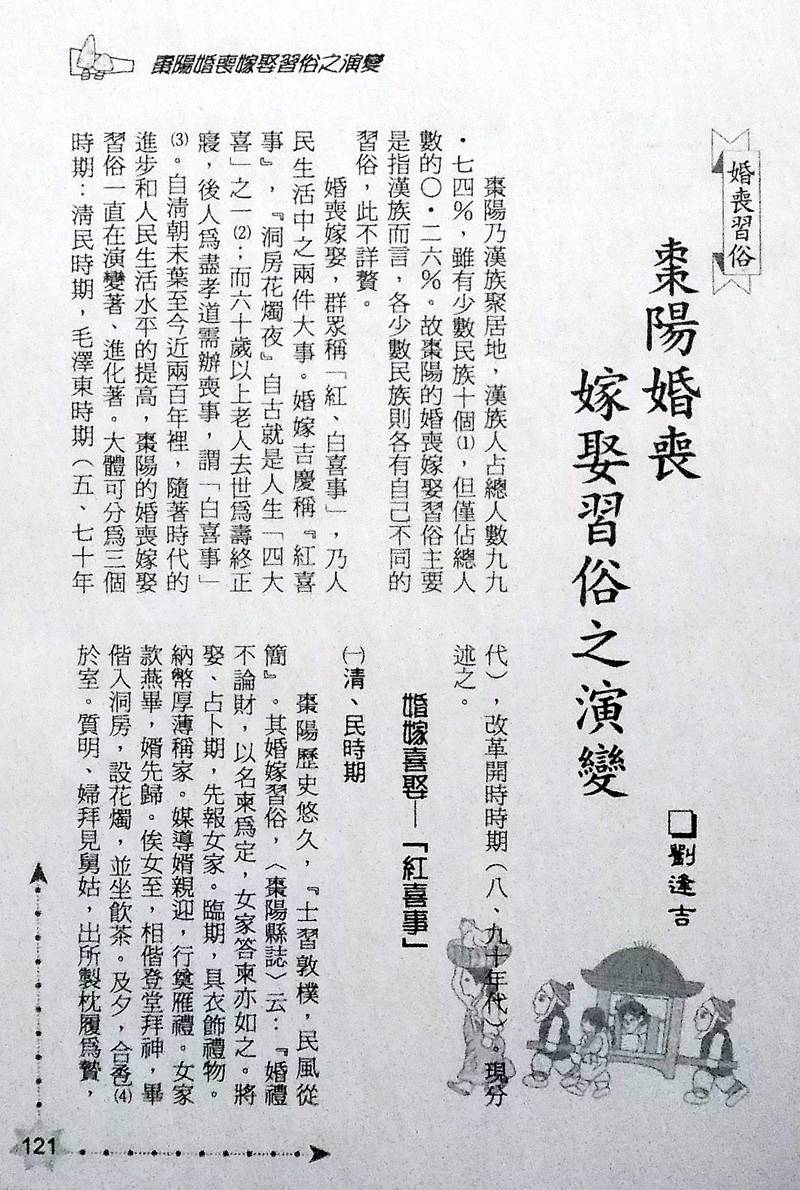 棗陽婚喪嫁娶習俗之演變
婚喪習俗
棗陽婚喪
嫁娶習俗之演變
□劉逢吉
棗陽乃漢族聚居地，漢族人占總人數九九
·七四%，雖有少數民族十個⑴，但僅佔總人
數的〇·二六%。故棗陽的婚喪嫁娶習俗主要
是指漢族而言，各少數民族則各有自己不同的
習俗，此不詳贅。
婚喪嫁娶，群眾稱「紅、白喜事」，乃人
民生活中之兩件大事。婚嫁吉慶稱『紅喜
事』，『洞房花燭夜』自古就是人生「四大
喜」之一⑵；而六十歲以上老人去世爲壽終正
寢，後人爲盡孝道需辦喪事，謂「白喜事」
⑶。自清朝末葉至今近兩百年裡，隨著時代的
進步和人民生活水平的提高，棗陽的婚喪嫁娶
習俗一直在演變著、進化著。大體可分爲三個
時期：清民時期，毛澤東時期（五、七十年
代），改革開時時期（八、九十年代）。現分
述之。
婚嫁喜娶—「紅喜事」
㈠清、民時期
棗陽歷史悠久，『士習敦樸，民風從
簡』。其婚嫁習俗，〈棗陽縣誌〉云：『婚禮
不論財，以名柬爲定，女家答柬亦如之。將
娶、占卜期，先報女家。臨期，具衣飾禮物。
納幣厚薄稱家。媒導婿親迎，行奠雁禮。女家
款燕畢，婿先歸。俟女至，相偕登堂拜神，畢
偕入洞房，設花燭，並坐飲茶。及夕，合巹⑷
於室。質明、婦拜見舅姑，出所製枕履爲贄，
121